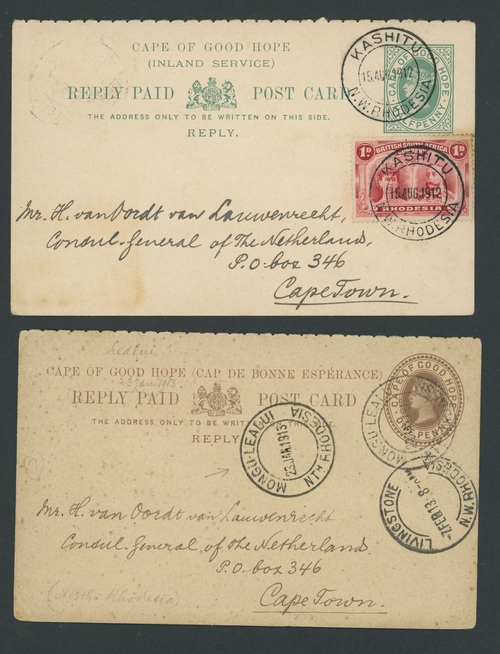 CAPE OF GOOD HOPE
(INLAND SERVICE)
REPLY PAID POST CARD
THE ADDRESS ONLY TO BE WRITTEN ON THIS SIDE.
REPLY.
CAPE OF GOOD HOPE
HALFPENNY
KASHITU
15 AUG 1912
N.W. RHODESIA
1D BRITISH SOUTH AFRICA 1D
RHODESIA
KASHITU
15 AUG 1912
N.W. RHODESIA
Mr. H. van Oordt van Lauwenrecht,
Consul-General of The Netherland,
P.O. box 346
Cape Town.
Lealui
23 Jan 1913
CAPE OF GOOD HOPE (CAP DE BONNE ESPÉRANCE)
REPLY PAID POST CARD
THE ADDRESS ONLY TO BE WRITTEN ON THIS SIDE.
REPLY
CAPE OF GOOD HOPE
ONE PENNY
MONGU-LEALUI
23 JAN 1913
NTH RHODESIA
MONGU-LEALUI
LIVINGSTONE
7 FEB 13
RHODESIA
Mr. H. van Oordt van Lauwenrecht
Consul-General of The Netherland.
P.O. box 346
Cape Town.
(North-Rhodesia)